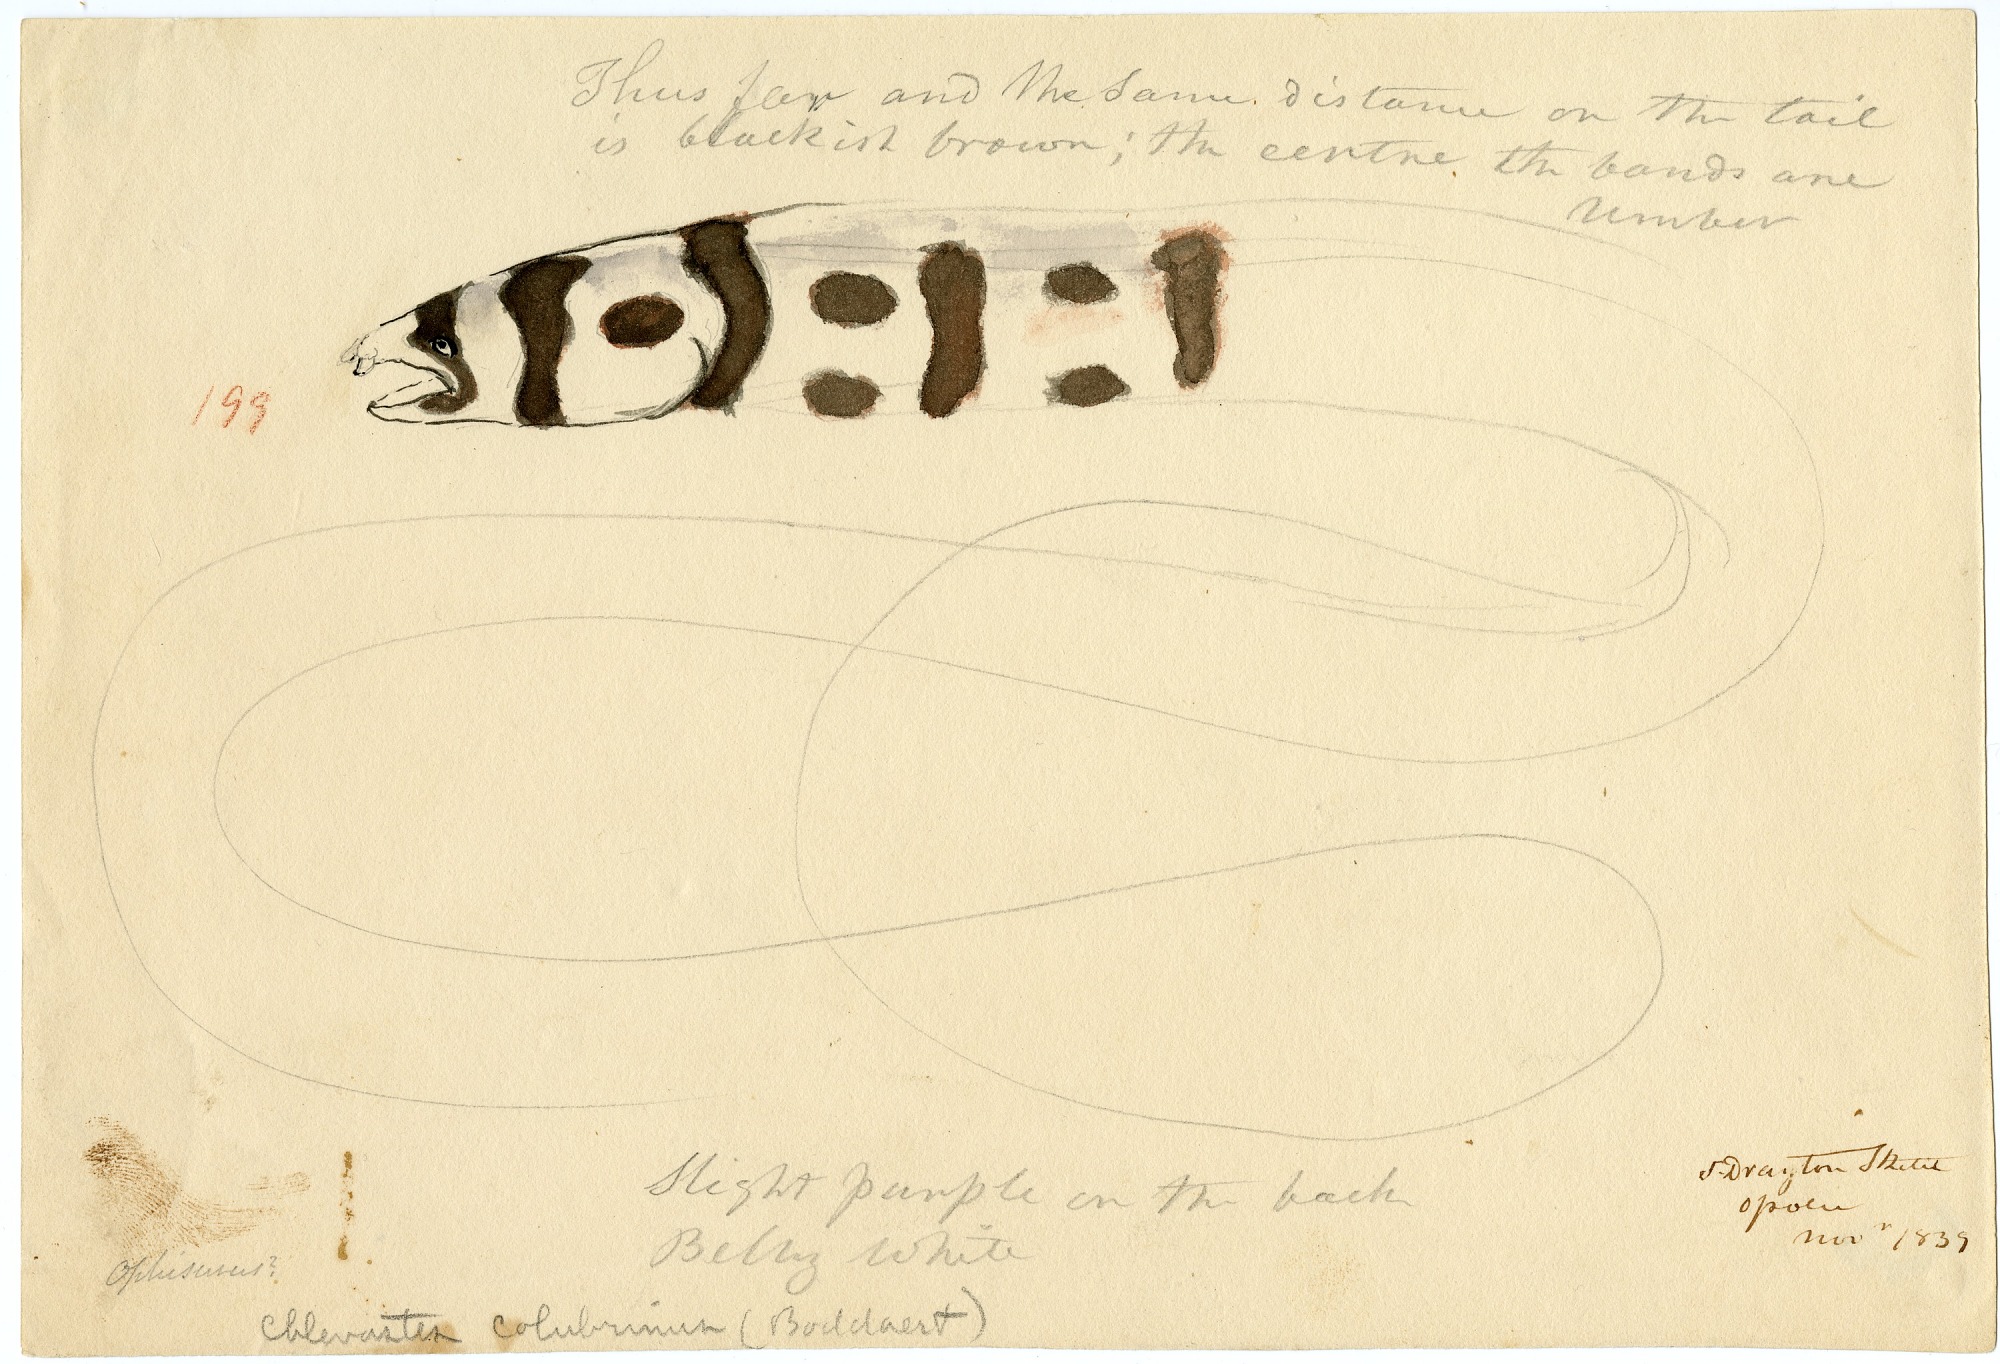 Thus far and the same distance on the tail
is blackish brown; the centre the bands are
umber
199
Slight purple on the back
Belly white
J. Drayton Sketch
Opolu
Novr 1839
Ophisurus?
Chlevastes colubrinus (Boddaert)